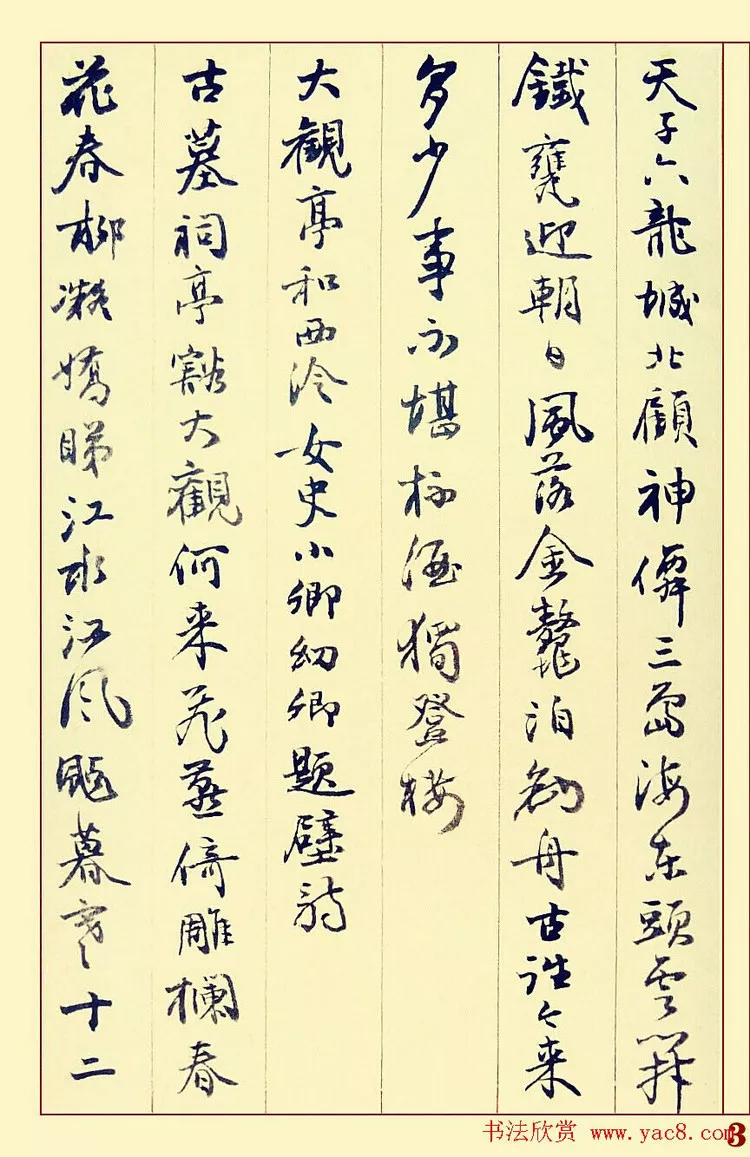 天子六龍城北顧神僊三島海東頭雲開
鐵甕迎朝日風落金鼇泊釣舟古往今来
多少事不堪杯酒獨登樓
大觀亭和西泠女史小卿幼卿題壁詩
古墓祠亭豁大觀何来飛燕倚雕欄春
花春柳凝嬌睇江水江風颭暮寒十二
书法欣赏 www.yac8.com
3